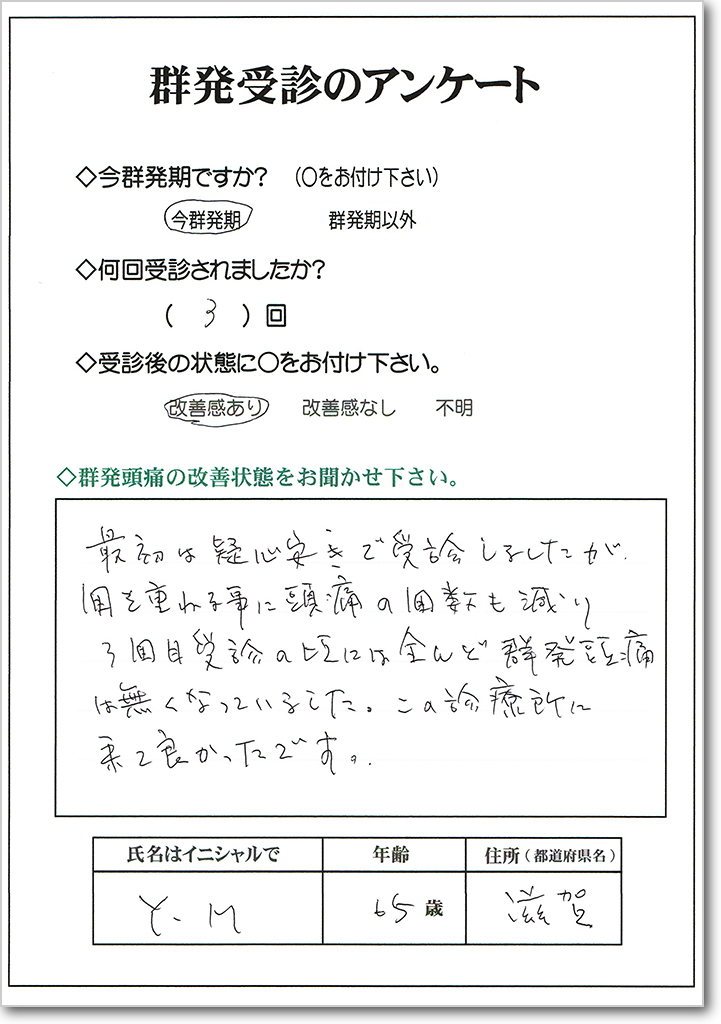 群発受診のアンケート
◇今群発期ですか？（○をお付け下さい）
今群発期　群発期以外
◇何回受診されましたか？
（ 3 ）回
◇受診後の状態に○をお付け下さい。
改善感あり　改善感なし　不明
◇群発頭痛の改善状態をお聞かせ下さい。
最初は疑心安きで受診しましたが、
回を重ねる事に頭痛の回数も減り
3回目受診の頃には全んど群発頭痛
は無くなっていました。この診療所に
来て良かったです。
氏名はイニシャルで　年齢　住所（都道府県名）
Y. M　65歳　滋賀